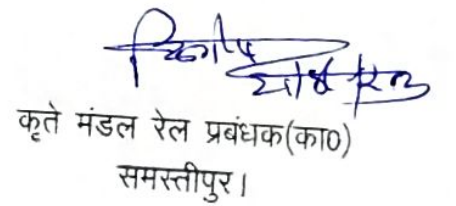 कृते मंडल रेल प्रबंधक(का0)
समस्तीपुर।